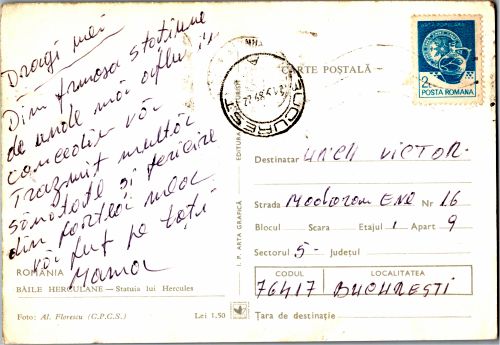 Dragi mei
Din frumoasa stațiune
de unde mă aflu în
concediu vă
trazmit multă
sănătate și fericire
din partea mea.
Vă pup pe toți
Mama
ROMÂNIA
BĂILE HERCULANE — Statuia lui Hercules
Foto: Al. Florescu (C.P.C.S.)
Lei 1,50
I. P. ARTA GRAFICĂ
EDITURA
BUCUREȘTI
CARTE POȘTALĂ
POSTA ROMANA
Destinatar VICTOR.
Strada Ene Nr 16
Blocul Scara Etajul 1 Apart 9
Sectorul 5- Județul
CODUL LOCALITATEA
76417 BUCUREȘTI
Țara de destinație